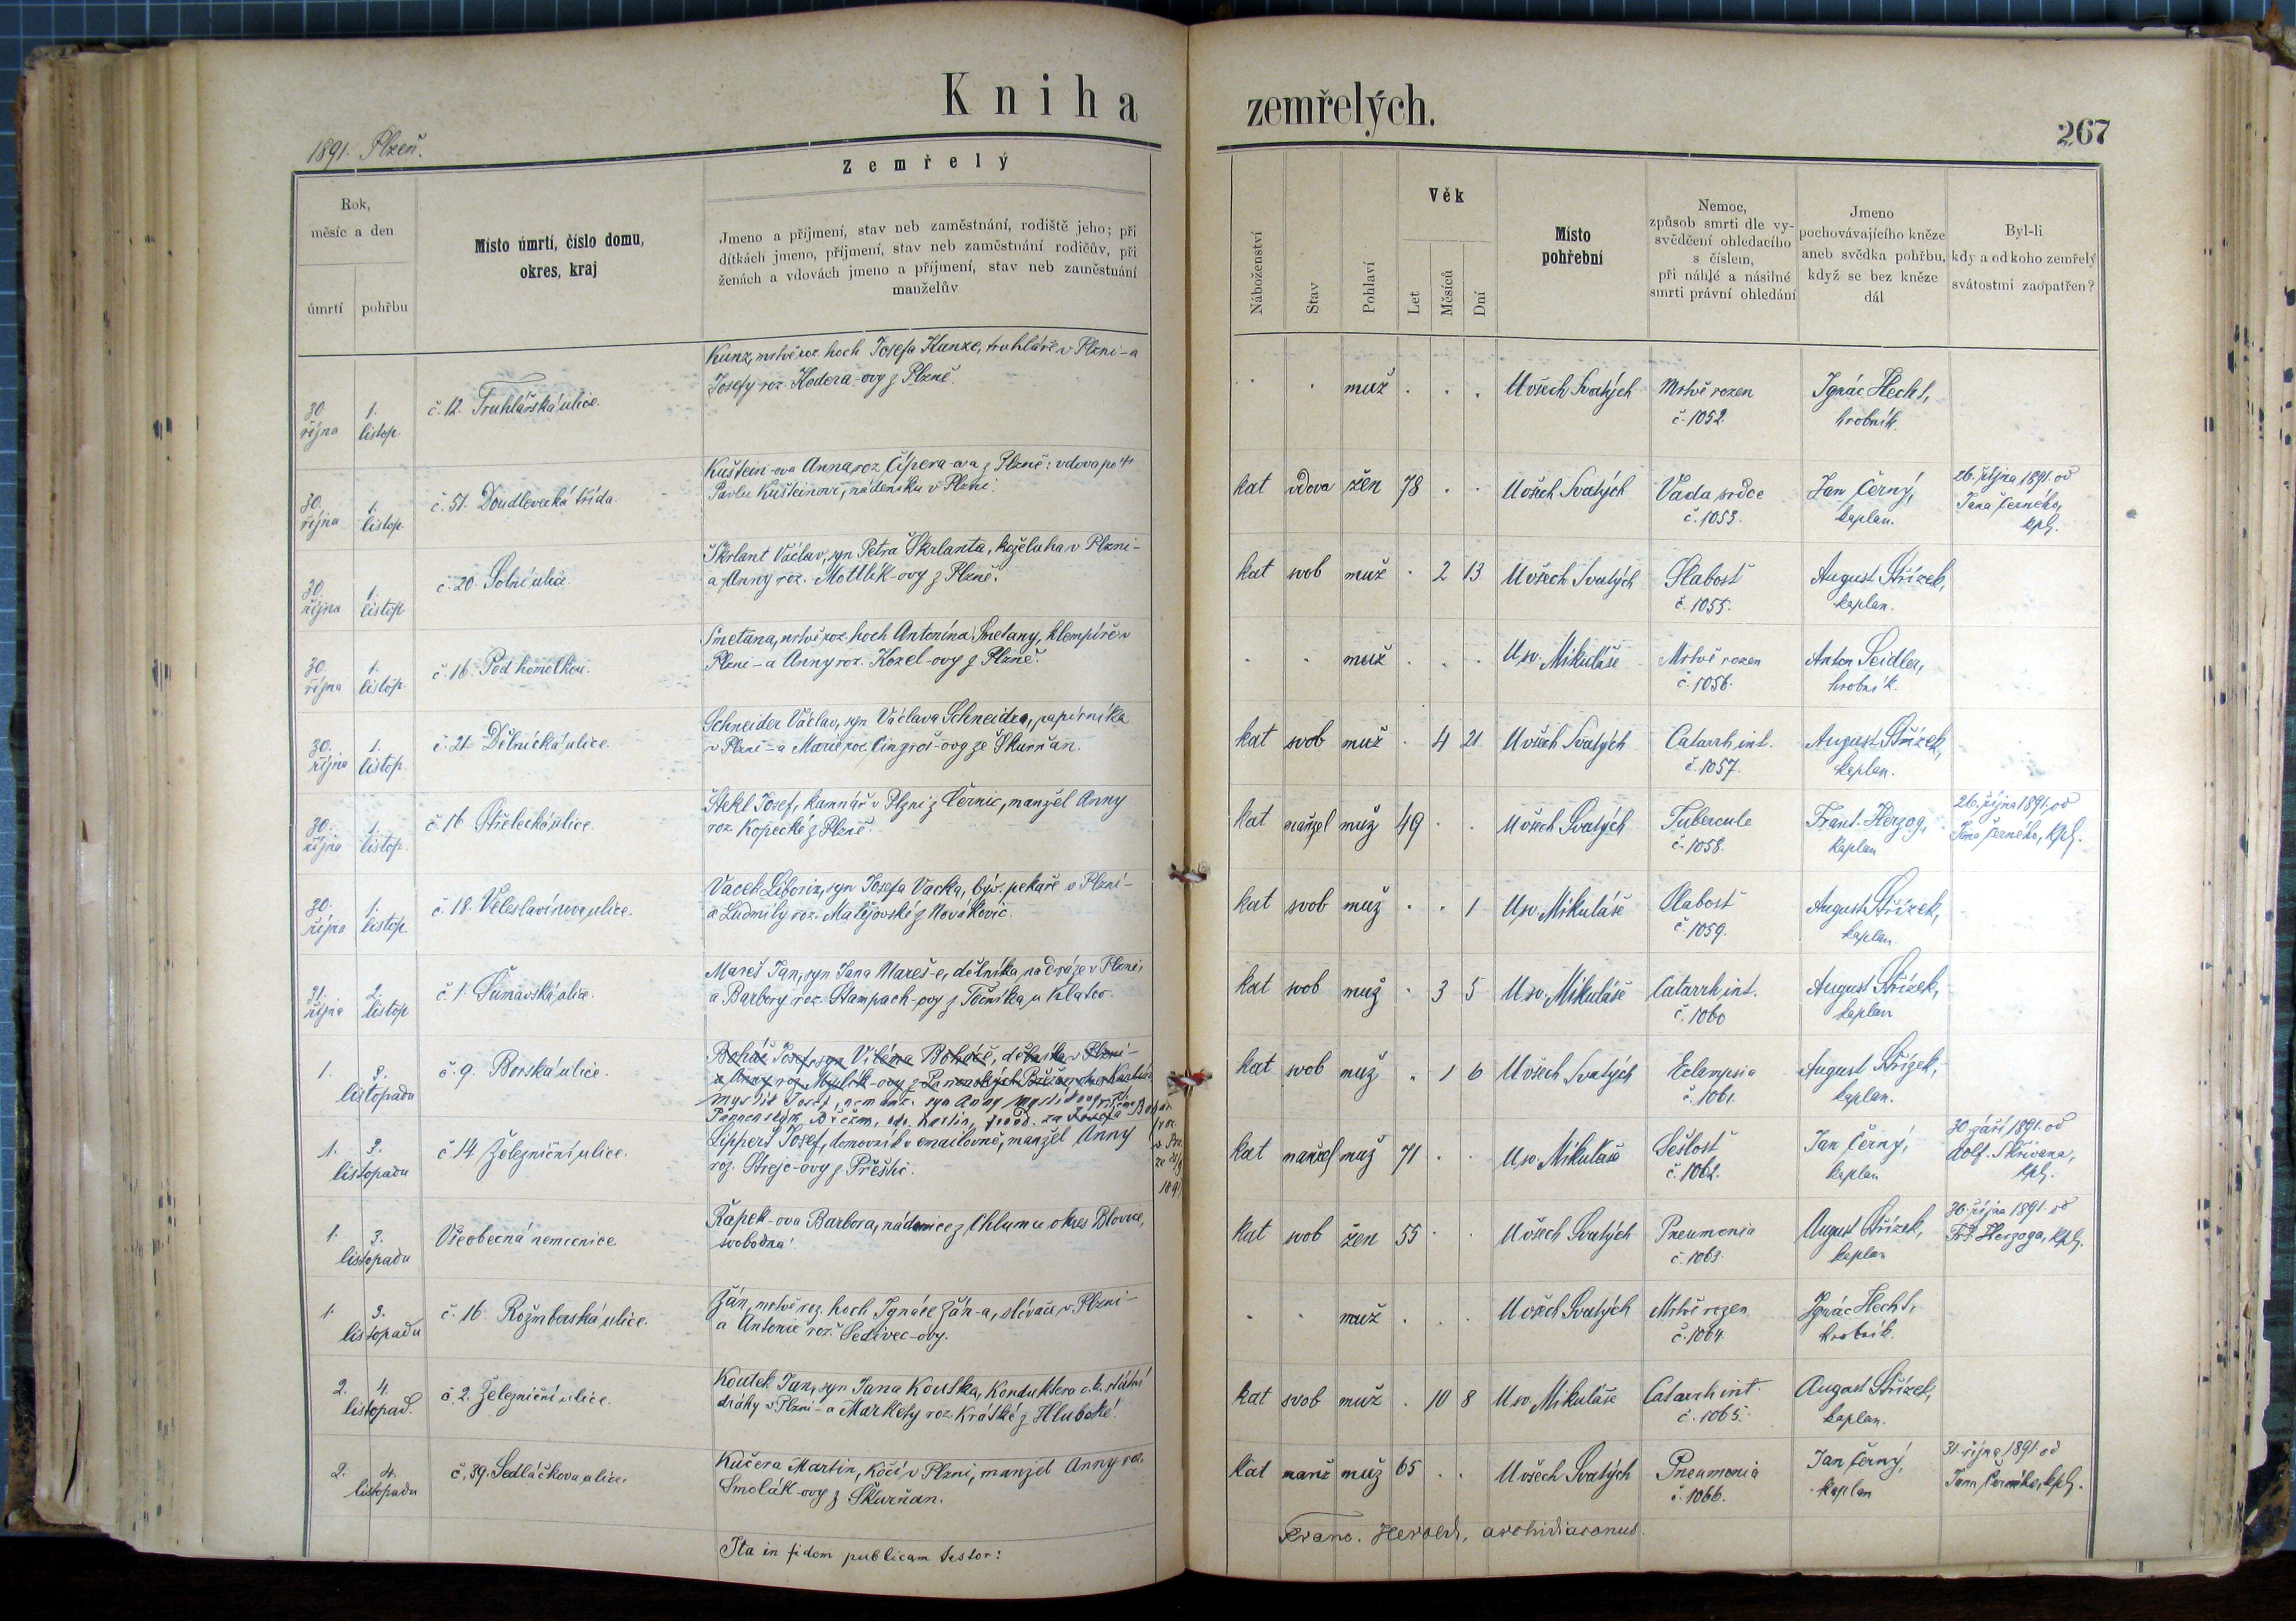 Kniha zemřelých.
267
1891. Plzeň.
Zemřelý
Rok,
měsíc a den
úmrtí
pohřbu
Místo úmrtí, číslo domu,
okres, kraj
Jmeno a příjmení, stav neb zaměstnání, rodiště jeho; při
dítkách jmeno, příjmení, stav neb zaměstnání rodičův, při
ženách a vdovách jmeno a příjmení, stav neb zaměstnání
manželův
Náboženství
Stav
Pohlaví
Věk
Let
Měsíců
Dní
Místo
pohřební
Nemoc,
způsob smrti dle vy-
svědčení ohledacího
s číslem,
při náhlé a násilné
smrti právní ohledání
Jmeno
pochovávajícího kněze
aneb svědka pohřbu,
když se bez kněze
dál
Byl-li
kdy a od koho zemřelý
svátostmi zaopatřen?
30. října
1. listop.
č. 12. Truhlářská ulice.
Kunz, mrtvě roz. hoch Josefa Kunze, truhláře v Plzni - a
Josefy roz. Kodera-ovy z Plzně.
muž
U všech Svatých
Mrtvě rozen
č. 1052.
Ignác Hecht,
hrobník.
30. října
1. listop.
č. 51. Doudlevecká třída.
Kuštein-ova Anna, roz. Čípera-ova z Plzně: vdova po †
Pavlu Kušteinovi, nádeníku v Plzni.
kat vdova žen 78
U všech Svatých
Vada srdce
č. 1053.
Jan Černý,
kaplan.
26. října 1891. od
Jana Černého,
kpl.
30. října
1. listop.
č. 20 Solní ulice
Škrlant Václav, syn Petra Škrlanta, koželuha v Plzni -
a Anny roz. Mottlík-ovy z Plzně.
kat svob muž 2 13
U všech Svatých
Slabosť
č. 1055.
August Střízek,
kaplan.
30. října
1. listop.
č. 16. Pod homolkou.
Smetana, mrtvě roz. hoch Antonína Smetany, klempíře v
Plzni - a Anny roz. Kozel-ovy z Plzně.
muž
U sv. Mikuláše
Mrtvě rozen
č. 1056.
Anton Seidler,
hrobník.
30. října
1. listop.
č. 21. Dělnická ulice.
Schneider Václav, syn Václava Schneidra, papírníka
v Plzni - a Marie roz. Cingroš-ovy ze Skurňan.
kat svob muž 4 21
U všech Svatých
Catarrh int.
č. 1057.
August Střízek,
kaplan.
30. října
1. listop.
č. 16 Střelecká ulice.
Stekl Josef, kamnář v Plzni z Černic, manžel Anny
roz. Kopecké z Plzně.
kat manžel muž 49
U všech Svatých
Tubercule
č. 1058.
Frant. Herzog,
kaplan
26. října 1891. od
Jana Černého, kpl.
30. října
1. listop.
č. 18. Veleslavínova ulice.
Vacek Liboriz, syn Josefa Vacka, býv. pekaře v Plzni -
a Ludmily roz. Matějovské z Novákovic.
kat svob muž 1
U sv. Mikuláše
Slabosť
č. 1059.
August Střízek,
kaplan.
31. října
2. listop.
č. 1. Šumavská ulice.
Mareš Jan, syn Jana Mareš-e, dělníka na dráze v Plzni,
a Barbory roz. Stampach-ovy z Točníka u Klatov.
kat svob muž 3 5
U sv. Mikuláše
Catarrh int.
č. 1060
August Střízek,
kaplan
1. 3.
listopadu
č. 9. Borská ulice.
Boháč Josef, syn Viléma Boháče, dělníka v Plzni -
Myslík Josef, nemanž. syn Anny
kat svob muž 1 6
U všech Svatých
Eclampsia
č. 1061.
August Střízek,
kaplan.
1. 3.
listopadu
č. 14 Železniční ulice.
Lippert Josef, domovník v emailovně, manžel Anny
roz. Strejc-ovy z Přeštic.
1891
kat manžel muž 71
U sv. Mikuláše
Sešlosť
č. 1062.
Jan Černý,
kaplan
30. září 1891. od
Adolf. Skřivana,
kpl.
1. 3.
listopadu
Všeobecná nemocnice
Řapek-ova Barbora, nádenice z Chlumu okres Blovice,
svobodná.
kat svob žen 55
U všech Svatých
Pneumonia
č. 1063.
August Střízek,
kaplan
30. října 1891. od
Fr. Herzoga, kpl.
1. 3.
listopadu
č. 16 Rožmberská ulice.
Zán, mrtvě roz. hoch Ignáce Zán-a, slévače v Plzni -
a Antonie roz. Šedivec-ovy.
muž
U všech Svatých
Mrtvě rozen
č. 1064.
Ignác Hecht,
hrobník.
2. 4.
listopad.
č. 2. Železniční ulice.
Koutek Jan, syn Jana Koutka, konduktera c. k. státní
dráhy v Plzni - a Markety roz. Krátké z Hluboké.
kat svob muž 10 8
U sv. Mikuláše
Catarrh int.
č. 1065.
August Střízek,
kaplan.
2. 4.
listopadu
č. 39. Sedláčkova ulice.
Kučera Martin, kočí v Plzni, manžel Anny roz.
Smolák-ovy z Skurňan.
kat manž muž 65
U všech Svatých
Pneumonia
č. 1066.
Jan Černý,
kaplan
31. října 1891. od
Jana Černého, kpl.
Ita in fidem publicam testor:
Franc. Herold, archidiaconus.